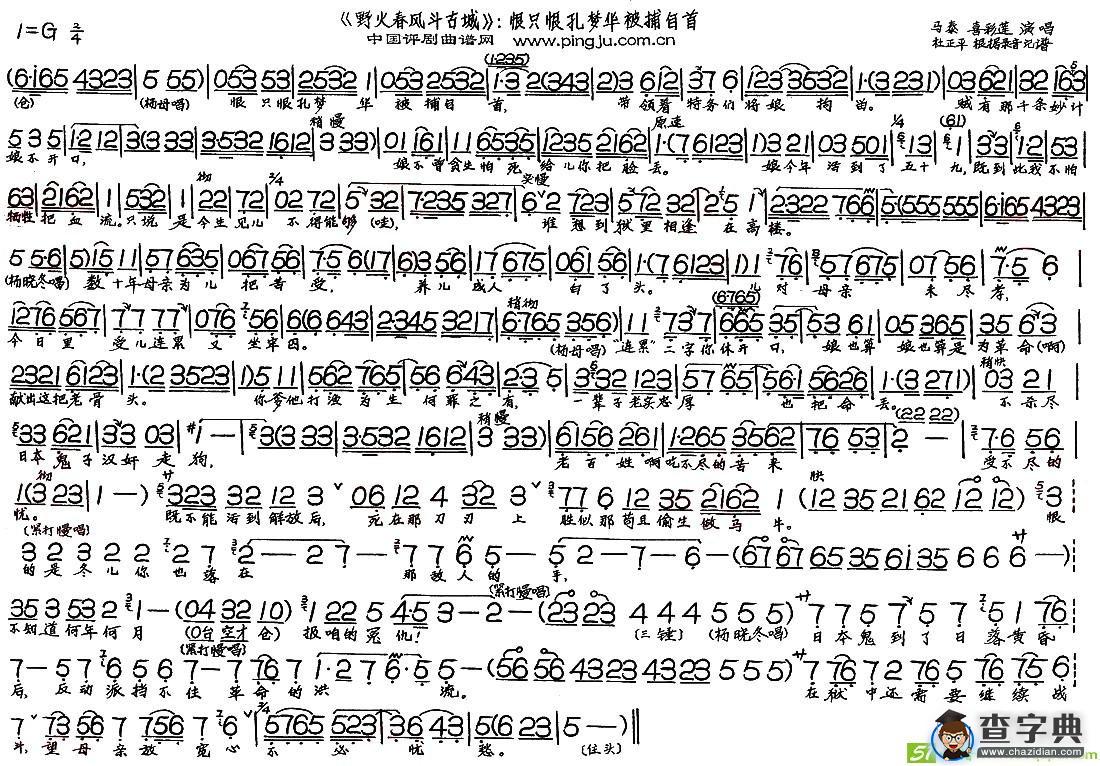 《野火春风斗古城》：恨只恨孔梦华被捕自首
1=G 2/4
中国评剧曲谱网 www.pingju.com.cn
马泰 喜彩莲 演唱
杜正平 根据录音记谱
(仓) (杨母唱) 恨只恨孔梦华被捕自首， 带领着特务们将娘拘留。 贼有那千条妙计
稍慢 原速
娘不开口， 娘不曾贪生怕死给儿你把脸丢。 娘今年活到了五十九，既到比我不怕
牺牲把血流。只说是今生见儿不得能够(哇)， 谁想到狱里相逢在高楼。
(杨晓冬唱) 数十年母亲为儿把苦受， 养儿成人白了头。 儿对母亲未尽孝，
今日里受儿连累又坐牢囚。 (杨母唱) "连累"二字你休开口， 娘也算娘也算是为革命(啊)
献出这把老骨头。 你爷他打渔为生何罪之有， 一辈子老实忠厚也把命丢。 不杀尽
日本鬼子汉奸走狗， 老百姓啊吃不尽的苦来 受不尽的
忧。 既不能活到解放后， 死在那刀刃上 胜似那苟且偷生做马牛。 恨
(紧打慢唱)
的是冬儿你也落在 那敌人的手，
不知道何年何月 (0台 空才 仓) 报咱的冤仇！ (紧打慢唱) (三锤) (杨晓冬唱) 日本鬼到了日落黄昏
(紧打慢唱)
后， 反动派挡不住革命的洪流。 在狱中还需要继续战
斗，望母亲放宽心不必忧愁。 (住头)
查字典
www.chazidian.com